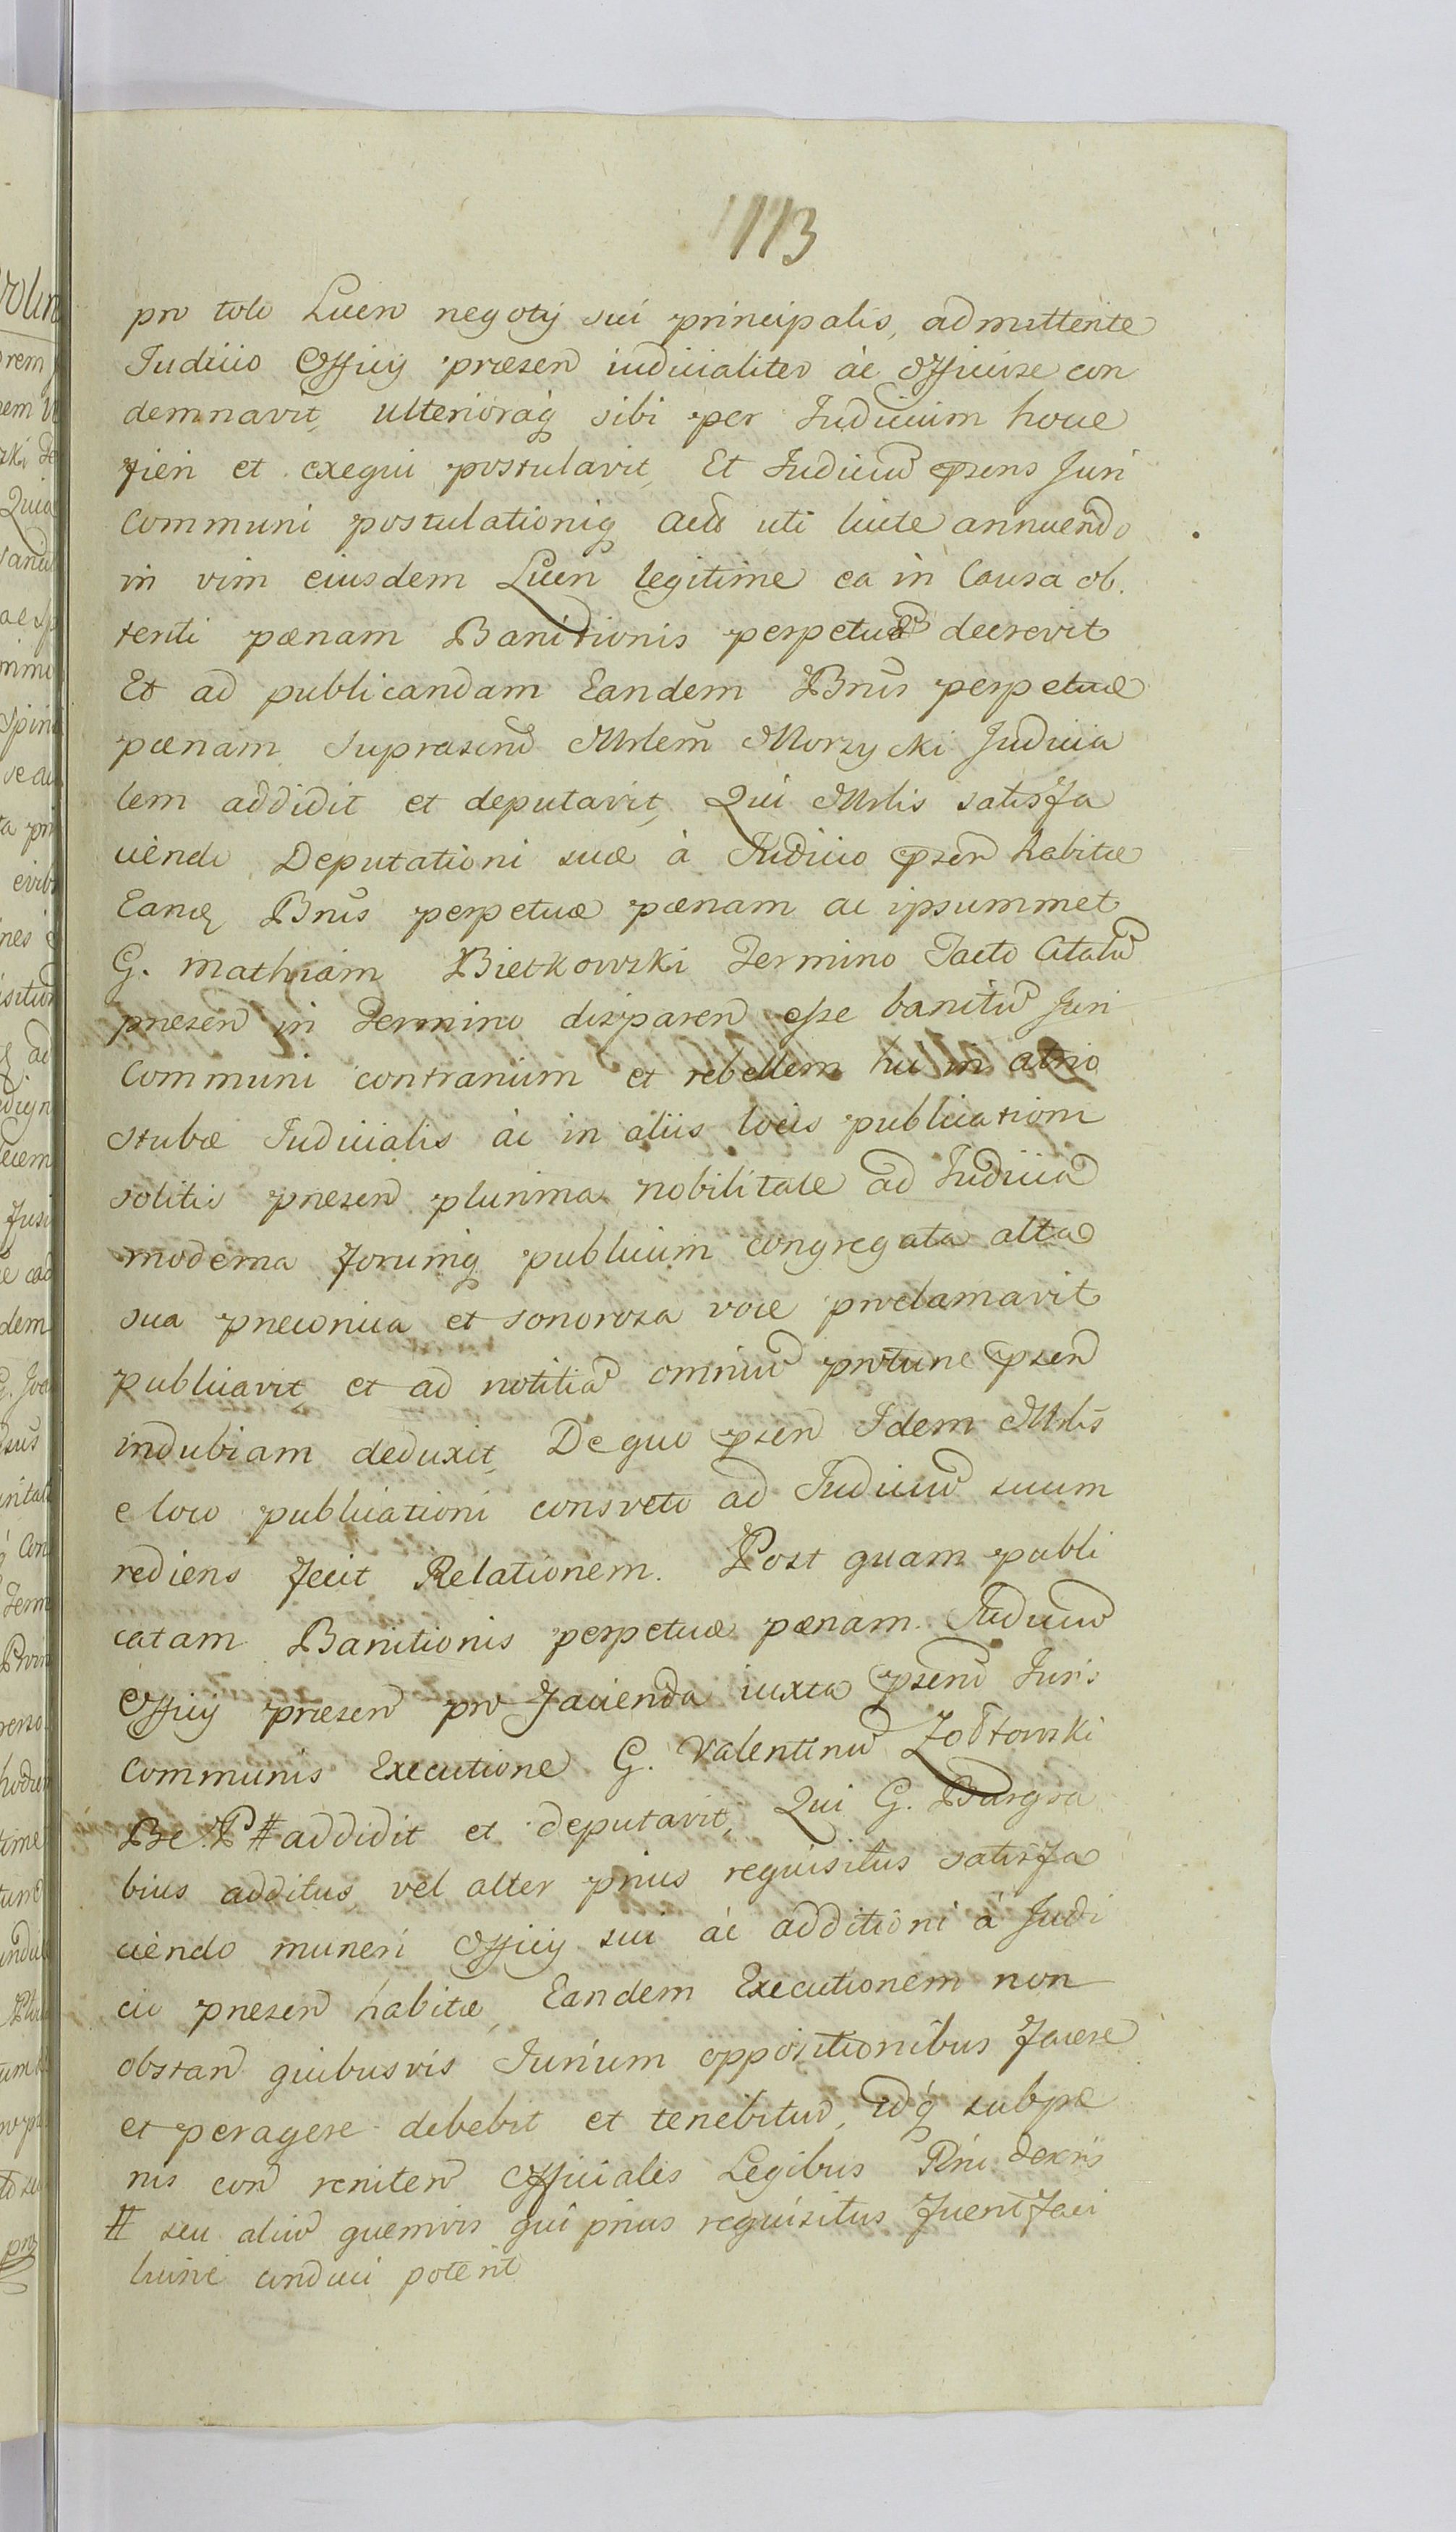 113
pro toto Lucro negotij sui principalis, admittente
Iudicio Officij præsen iudicialiter ac Officiose con
demnavit, ulterioraq sibi per Iudicium hocce
fieri et exequi postulavit, Et Iudiciu psens Juri
Communi postulationiq Acts uti licite annuendo
in vim eiusdem Lucri legitime ea in Causa ob.
tenti pœnam Banitionis perpetuæ decrevit
Et ad publicandam Eandem Bnis perpetuæ
pœnam suprascrid Mrlem Morzycki Judicia
lem addidit et deputavit, Qui Mrlis satisfa
ciendo Deputationi suæ à Iudicio psen habitæ
Eanq Bnis perpetuæ pœnam ac ipsummet
G. Mathiam Bietkowski Termino Tacto Citatu
presen in Termino disparen esse banitu Juri
Communi contrarium et rebellem hic in atrio
stubæ Iudicialis ac in aliis locis publicationi
solitis presen plurima nobilitate ad Iudicia
moderna forumq publicum congregata alta
sua preconica et sonorosa voce proclamavit
publicavit, et ad notitia omniu protunc psen
indubiam deduxit, De quo psen Idem Mrlis
e loco publicationi consveto ad Iudiciu suum
rediens fecit Relationem. Post quam publi
catam Banitionis perpetuæ pœnam. Iudiciu
Officij præsen pro facienda iuxta pscrid Juris
Communis Executione G. Valentinu Zołtowski
B. C. P. # addidit et deputavit, Qui G. Burgra
bius additus, vel alter prius requisitus satisfa
ciendo muneri Officij sui ac additioni à Judi
cio presen habitæ, Eandem Executionem non
obstan quibusvis Iurium oppositionibus facere
et peragere debebit et tenebitur, idq sub pœ
nis con reniten Officiales Legibus Rni dexris
# seu aliu quemvis qui prius requisitus fuerit faci
lius conduci poterit